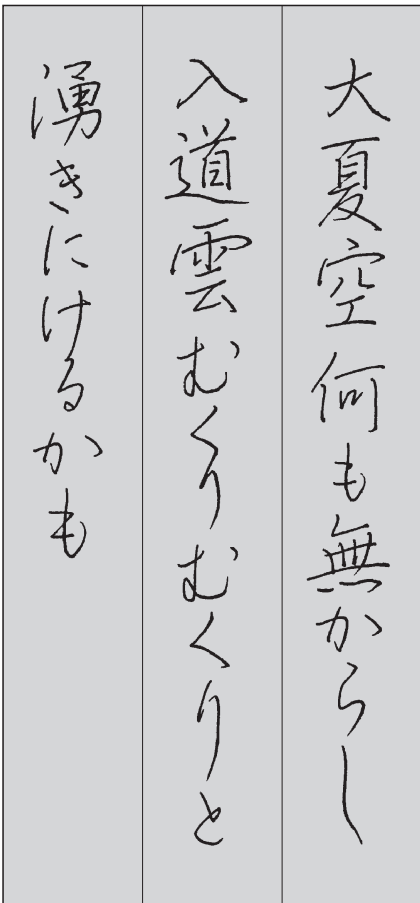 大夏空何も無からし
入道雲むくりむくりと
湧きにけるかも